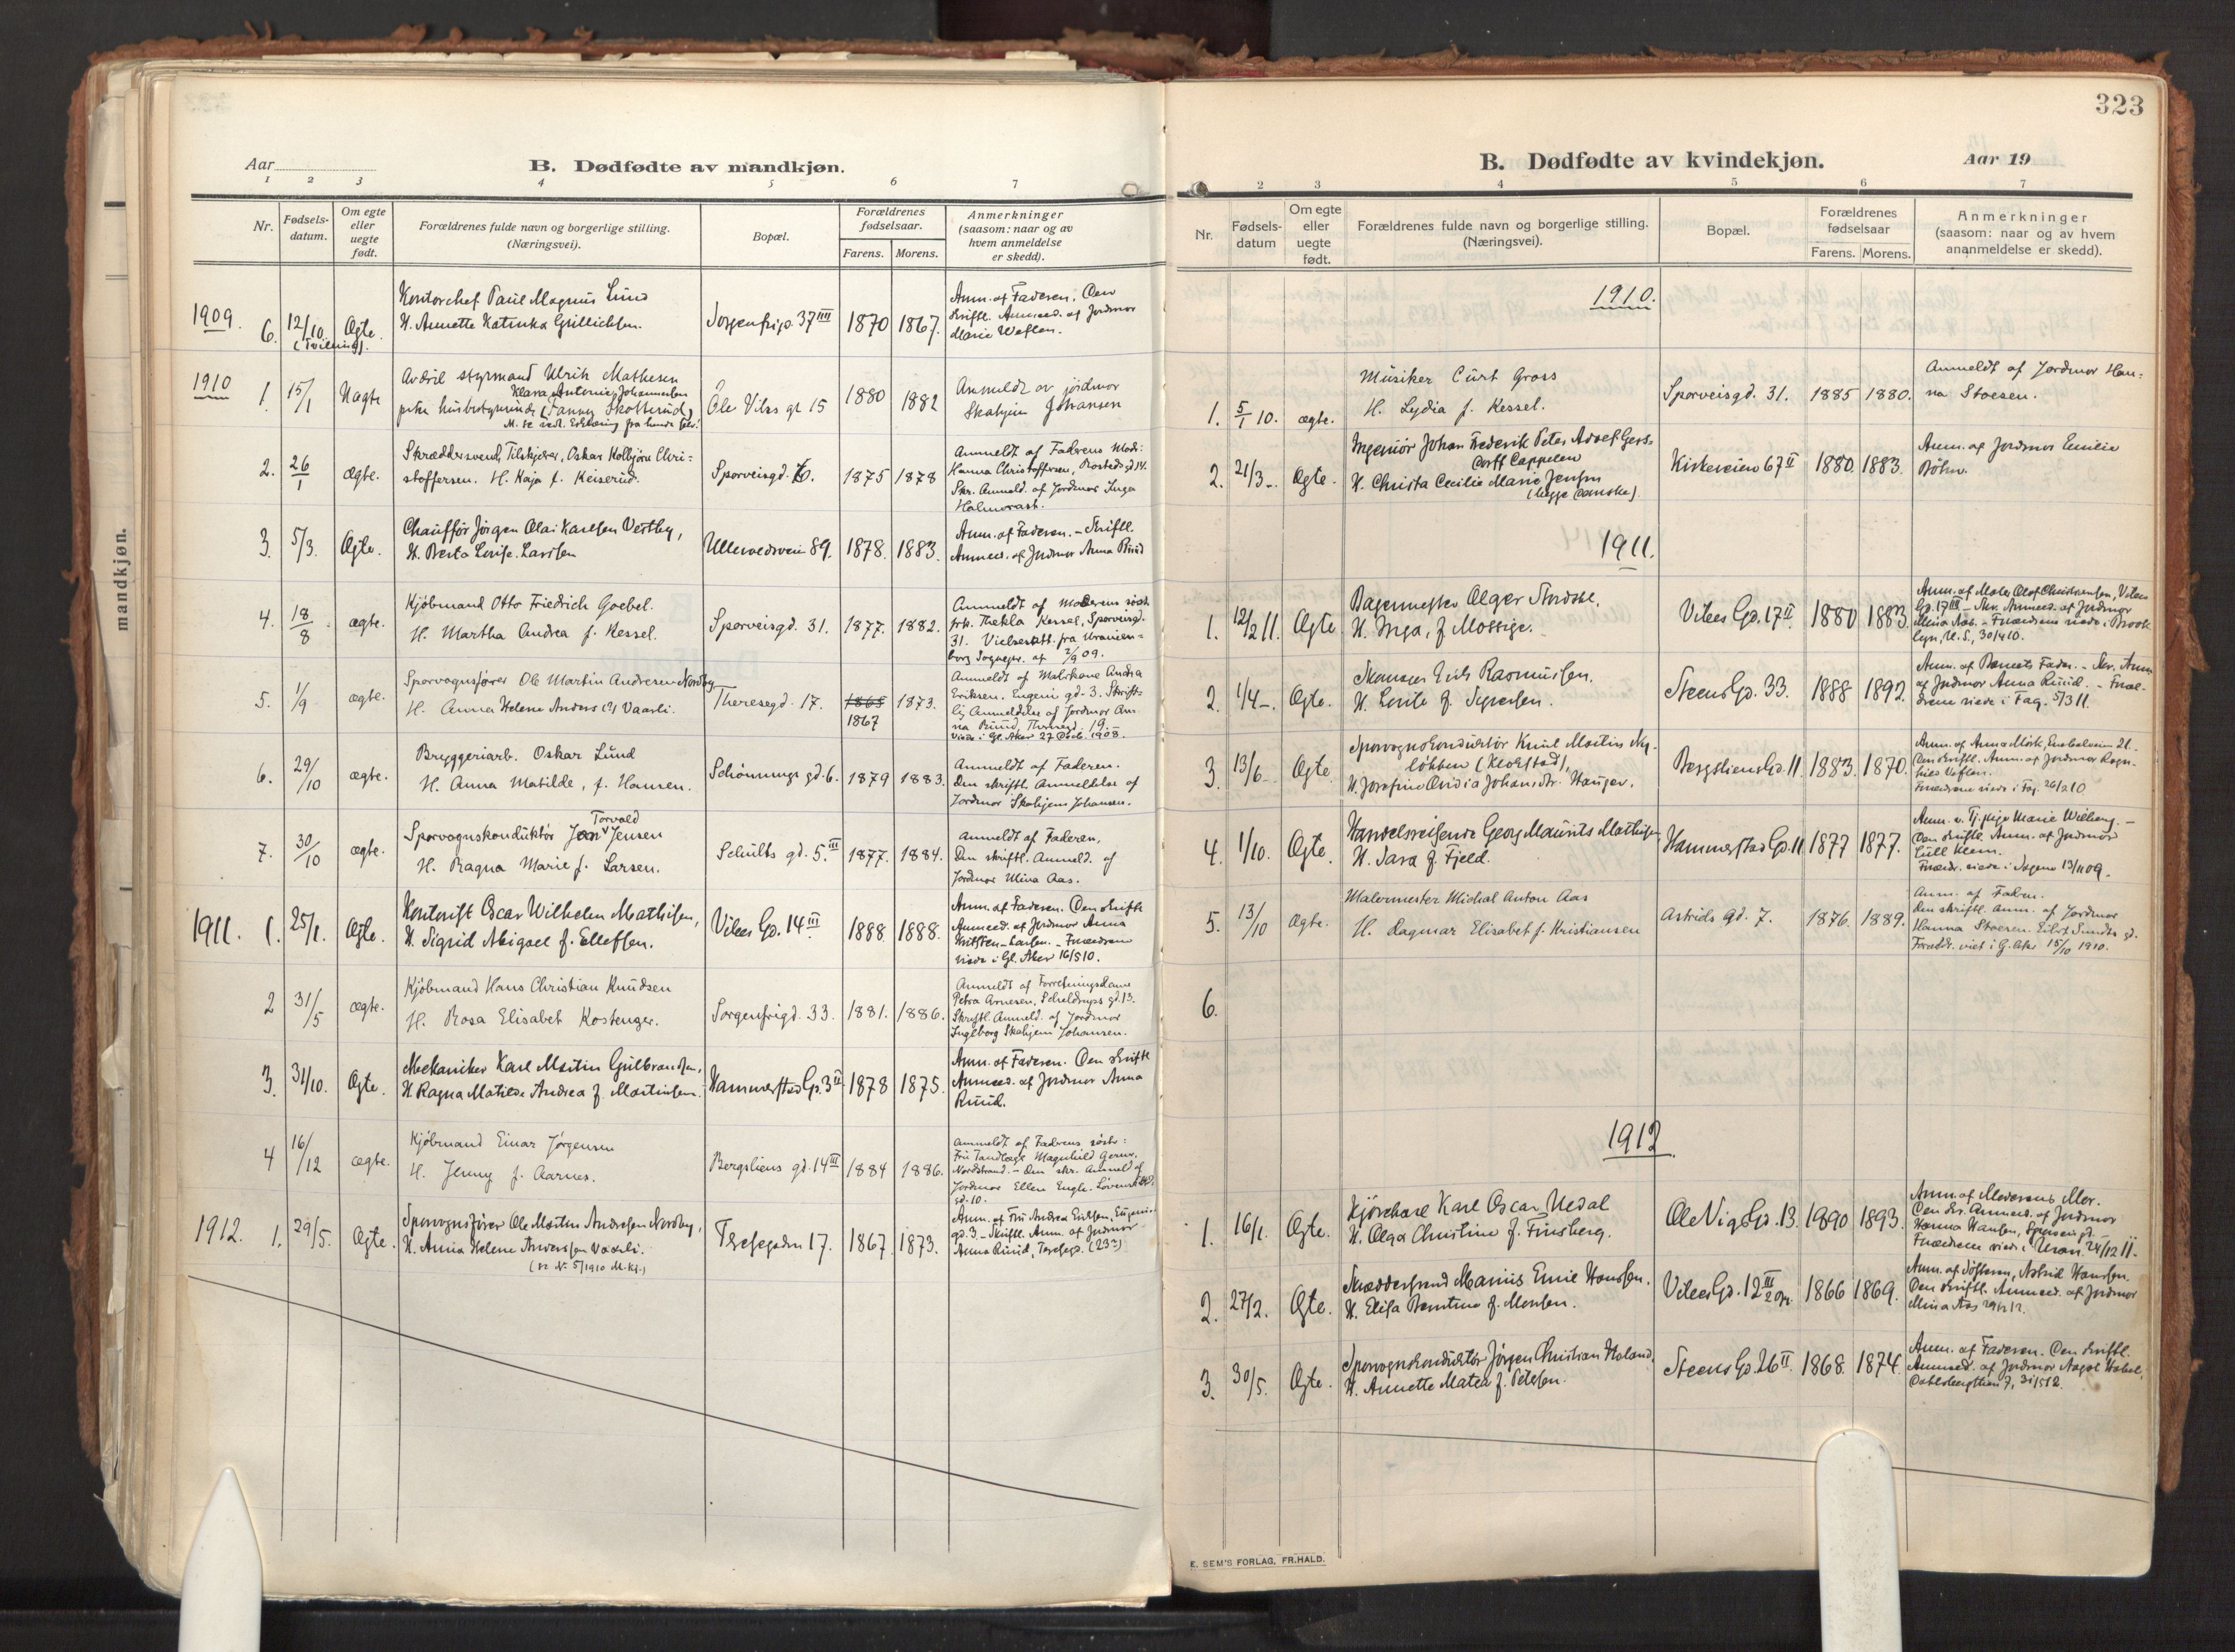 mandkjøn.
Aar
B. Dødfødte av mandkjøn.
1 2 3 4 5 6 7
Nr.
Fødsels-
datum.
Om egte
eller
uegte
født.
Forældrenes fulde navn og borgerlige stilling.
(Næringsvei).
Bopæl.
Forældrenes
fødselsaar.
Farens. Morens.
Anmerkninger
(saasom: naar og av
hvem anmeldelse
er skedd).
1909. 6. 12/10. Ægte.
(Tvilling).
Kontorchef Paul Magnus Lund
H. Annette Katinka
Sorgenfrigd. 37 IIII 1870 1867.
Anm. af Faderen. Den
skriftl. Anmeld. af Jordmor
Marie Weflen.
1910 1. 15/1 Uægte
styrmand Ulrik Mathesen
Klara Antonie Johannesen
(Fanny Skotterud)
M. se vedl. Erklæring fra hende selv.
Ole Vigs gt 15 1880 1882
Anmeldt av jordmor
Skahjem Johansen
2. 26/1 ægte.
Skræddersvend, Tilskjærer, Oskar Kolbjørn Chri-
stoffersen. H. Kaja f. Keiserud.
Sporveisgd. 6. 1875 1878
Anmeldt af Faderens Mod:
Hanna Christoffersen, Rostedsgd 14.
Skr. Anmeld. af Jordmor Inga
Holmvast.
3. 5/3. Ægte.
Chauffør Jørgen Olai Karlsen Vestby,
H. Berta Lovise Larsen
Ullevoldsvein 89. 1878. 1883.
Anm. af Faderen. – Skriftl.
Anmeld. af Jordmor Anna Ruud
4. 18/8 ægte.
Kjøbmand Otto Friedrich Goebel.
H. Martha Andrea f. Kessel.
Sporveisgd. 31. 1877. 1882.
Anmeldt af Moderens søst.
frk. Thekla Kessel, Sporveisgd.
31. Vielsesatt. fra Uranien-
borg Sognepr. af 2/9 09.
5. 1/9 ægte.
Sporvognsfører Ole Martin Andresen Nordby
H. Anna Helene Anders Vaarli.
Theresegd. 17. 1865 1867 1873.
Anmeldt af Melkekone Andrea
Eriksen, Eugenie gd. 3. Skrift-
lig Anmeldelse af Jordmor An-
na Ruud, Theresegd. 19.
Viede i Gl. Aker 27 Decb. 1908.
6. 29/10 ægte.
Bryggeriarb. Oskar Lund
H. Anna Matilde, f. Hansen.
Schønnings gd. 6. 1879 1883.
Anmeldt af Faderen.
Den skriftl. Anmeldelse af
Jordmor Skahjem Johansen.
7. 30/10 ægte.
Torvald
Sporvognskonduktør Jensen
H. Ragna Marie f. Larsen.
Schults gd. 5. III 1877. 1884.
Anmeldt af Faderen,
Den skriftl. Anmeld. af
Jordmor Mina Aas.
1911. 1. 25/1. Ægte.
Kontorist Oscar Wilhelm Mathisen,
H. Sigrid Abigael f. Ellefsen.
Vibes Gd. 14 III 1888. 1888.
Anm. af Faderen. Den skriftl
Anmeld. af Jordmor Anna
Larsen. – Forældrene
viede i Gl. Aker 16/5 10.
2 31/5 ægte.
Kjøbmand Hans Christian Knudsen
H. Rosa Elisabet Kostenger.
Sorgenfrigd. 33. 1881. 1886.
Anmeldt af Forretningsdame
Petra Arnesen, Scheldrups gd. 13.
Skriftl. Anmeld. af Jordmor
Ingeborg Skahjem Johansen.
3. 31/10. Ægte.
Mekaniker Karl Martin Gulbrandsen,
H. Ragna Matilde Andrea f. Martinsen.
Hammerstad Gd. 3 II 1878 1875.
Anm. af Faderen. Den skriftl
Anmeld. af Jordmor Anna
Ruud.
4 16/12 ægte.
Kjøbmand Einar Jørgensen
H. Jenny f. Aarnes.
Bergsliens gd. 14 III 1884 1886.
Anmeldt af Faderens søster:
Fru Tandlæge Magnhild
Nordstrand. – Den skr. Anmeld af
Jordmor Ellen Engh.
gd. 10.
1912. 1. 29/5. Ægte.
Sporvognsfører Ole Martin Andresen Nordby,
H. Anna Helene Andersen Vaarli.
(se No 5/1910 M.kj.)
Teresegaden 17. 1867. 1873.
Anm. af Fru Andrea Eriksen, Eugenie
gd. 3. – Skriftl. Anm. af Jordmor
Anna Ruud, Teresegd.
323
B. Dødfødte av kvindekjøn.
Aar 19
2 3 4 5 6 7
Nr.
Fødsels-
datum
Om egte
eller
uegte
født.
Forældrenes fulde navn og borgerlige stilling.
(Næringsvei).
Bopæl.
Forældrenes
fødselsaar
Farens. Morens.
Anmerkninger
(saasom: naar og av hvem
ananmeldelse er skedd).
1910.
1. 5/1 10. ægte.
Musiker Curt Gross
H. Lydia f. Kessel.
Sporveisgd. 31. 1885 1880.
Anmeldt af Jordmor Han-
na Stoesen.
2. 21/3 –. Ægte.
Ingeniør Johan Frederik Peter Adolf Gers-
dorff Cappelen
H. Christa Cecilie Marie Jensen
(begge danske).
Kirkeveien 67 II 1880. 1883.
Anm. af Jordmor Emilie
Bøhn.
1911.
1. 12/2 11. Ægte
Bagermester Olger Nordske.
H. Inga, f. Mossige.
Vibes Gd. 17 II 1880 1883.
Anm. af Maler Olaf Christiansen, Vibes
Gd. 17 III – Skr. Anmeld. af Jordmor
Mina Aas. – Forældrene viede i Brook-
lyn, U.S., 30/4 10.
2. 1/4 –. Ægte.
Rasmussen.
H. Lovise f. Syversen.
Steens Gd. 33. 1888 1892.
Anm. af Barnets Fader. – Skr. Anm
af Jordmor Anna Ruud. – Foræl-
drene viede i Fag. 5/3 11.
3 13/6 – Ægte
Sporvognskonduktør Knut Martin Ny-
løkken
H. Josefine Ovidia Johansdtr. Hauger.
Bergsliens Gd. 11. 1883. 1870.
Anm. af Anna Mørk, Enebakveien 21.
Den skriftl. Anm. af Jordmor Ragn-
hild Veflen.
Forældrene viede i Fag. 26/2 10
4. 1/10. Ægte.
Handelsreisende Georg Maurits Mathisen
H. Sara f. Fjeld.
Hammerstad Gd. 11 1877 1877.
Anm. v. Tj.pige Marie Wiberg. –
Den skriftl. Anm. af Jordmor
Lull Klem.
Forældr. viede i Sagene 13/11 09.
5. 13/10 Ægte.
Malermester Michal Anton Aas
H. Dagmar Elisabet f. Kristiansen
Astrids gd. 7. 1876. 1889.
Anm. af Faderen.
Den skriftl. Anm. af Jordmor
Hanna Stoesen. Eilert Sundts gd.
Forældr. viet i G. Aker 15/10 1910.
6.
1912.
1. 16/1. Ægte.
Kjørekarl Karl Oscar Uedal
H. Olga Christine f. Finsberg.
Ole Vigs Gd. 13. 1890 1893.
Anm. af Moderens Mor.
Den skr. Anmeld. af Jordmor
Hanna Hansen, –
Forældrene viede i Uran. 24/12 11.
2. 27/2. Ægte.
Skræddersvend Marius Emil Hansen.
H. Elisa Berntine f. Monsen.
Vibes Gd. 12 III 1866 1869.
Anm. af Søsteren, Astrid Hansen.
Den skriftl. Anmeld. af Jordmor
Mina Aas
3. 30/5. Ægte.
Sporvognskonduktør Jørgen Christian Holand,
H. Annette Matea f. Petersen.
Steens Gd. 26 II 1868. 1874.
Anm. af Faderen. Den skriftl.
Anmeld. af Jordmor
31/5 12.
E. SEM'S FORLAG, FR.HALD.